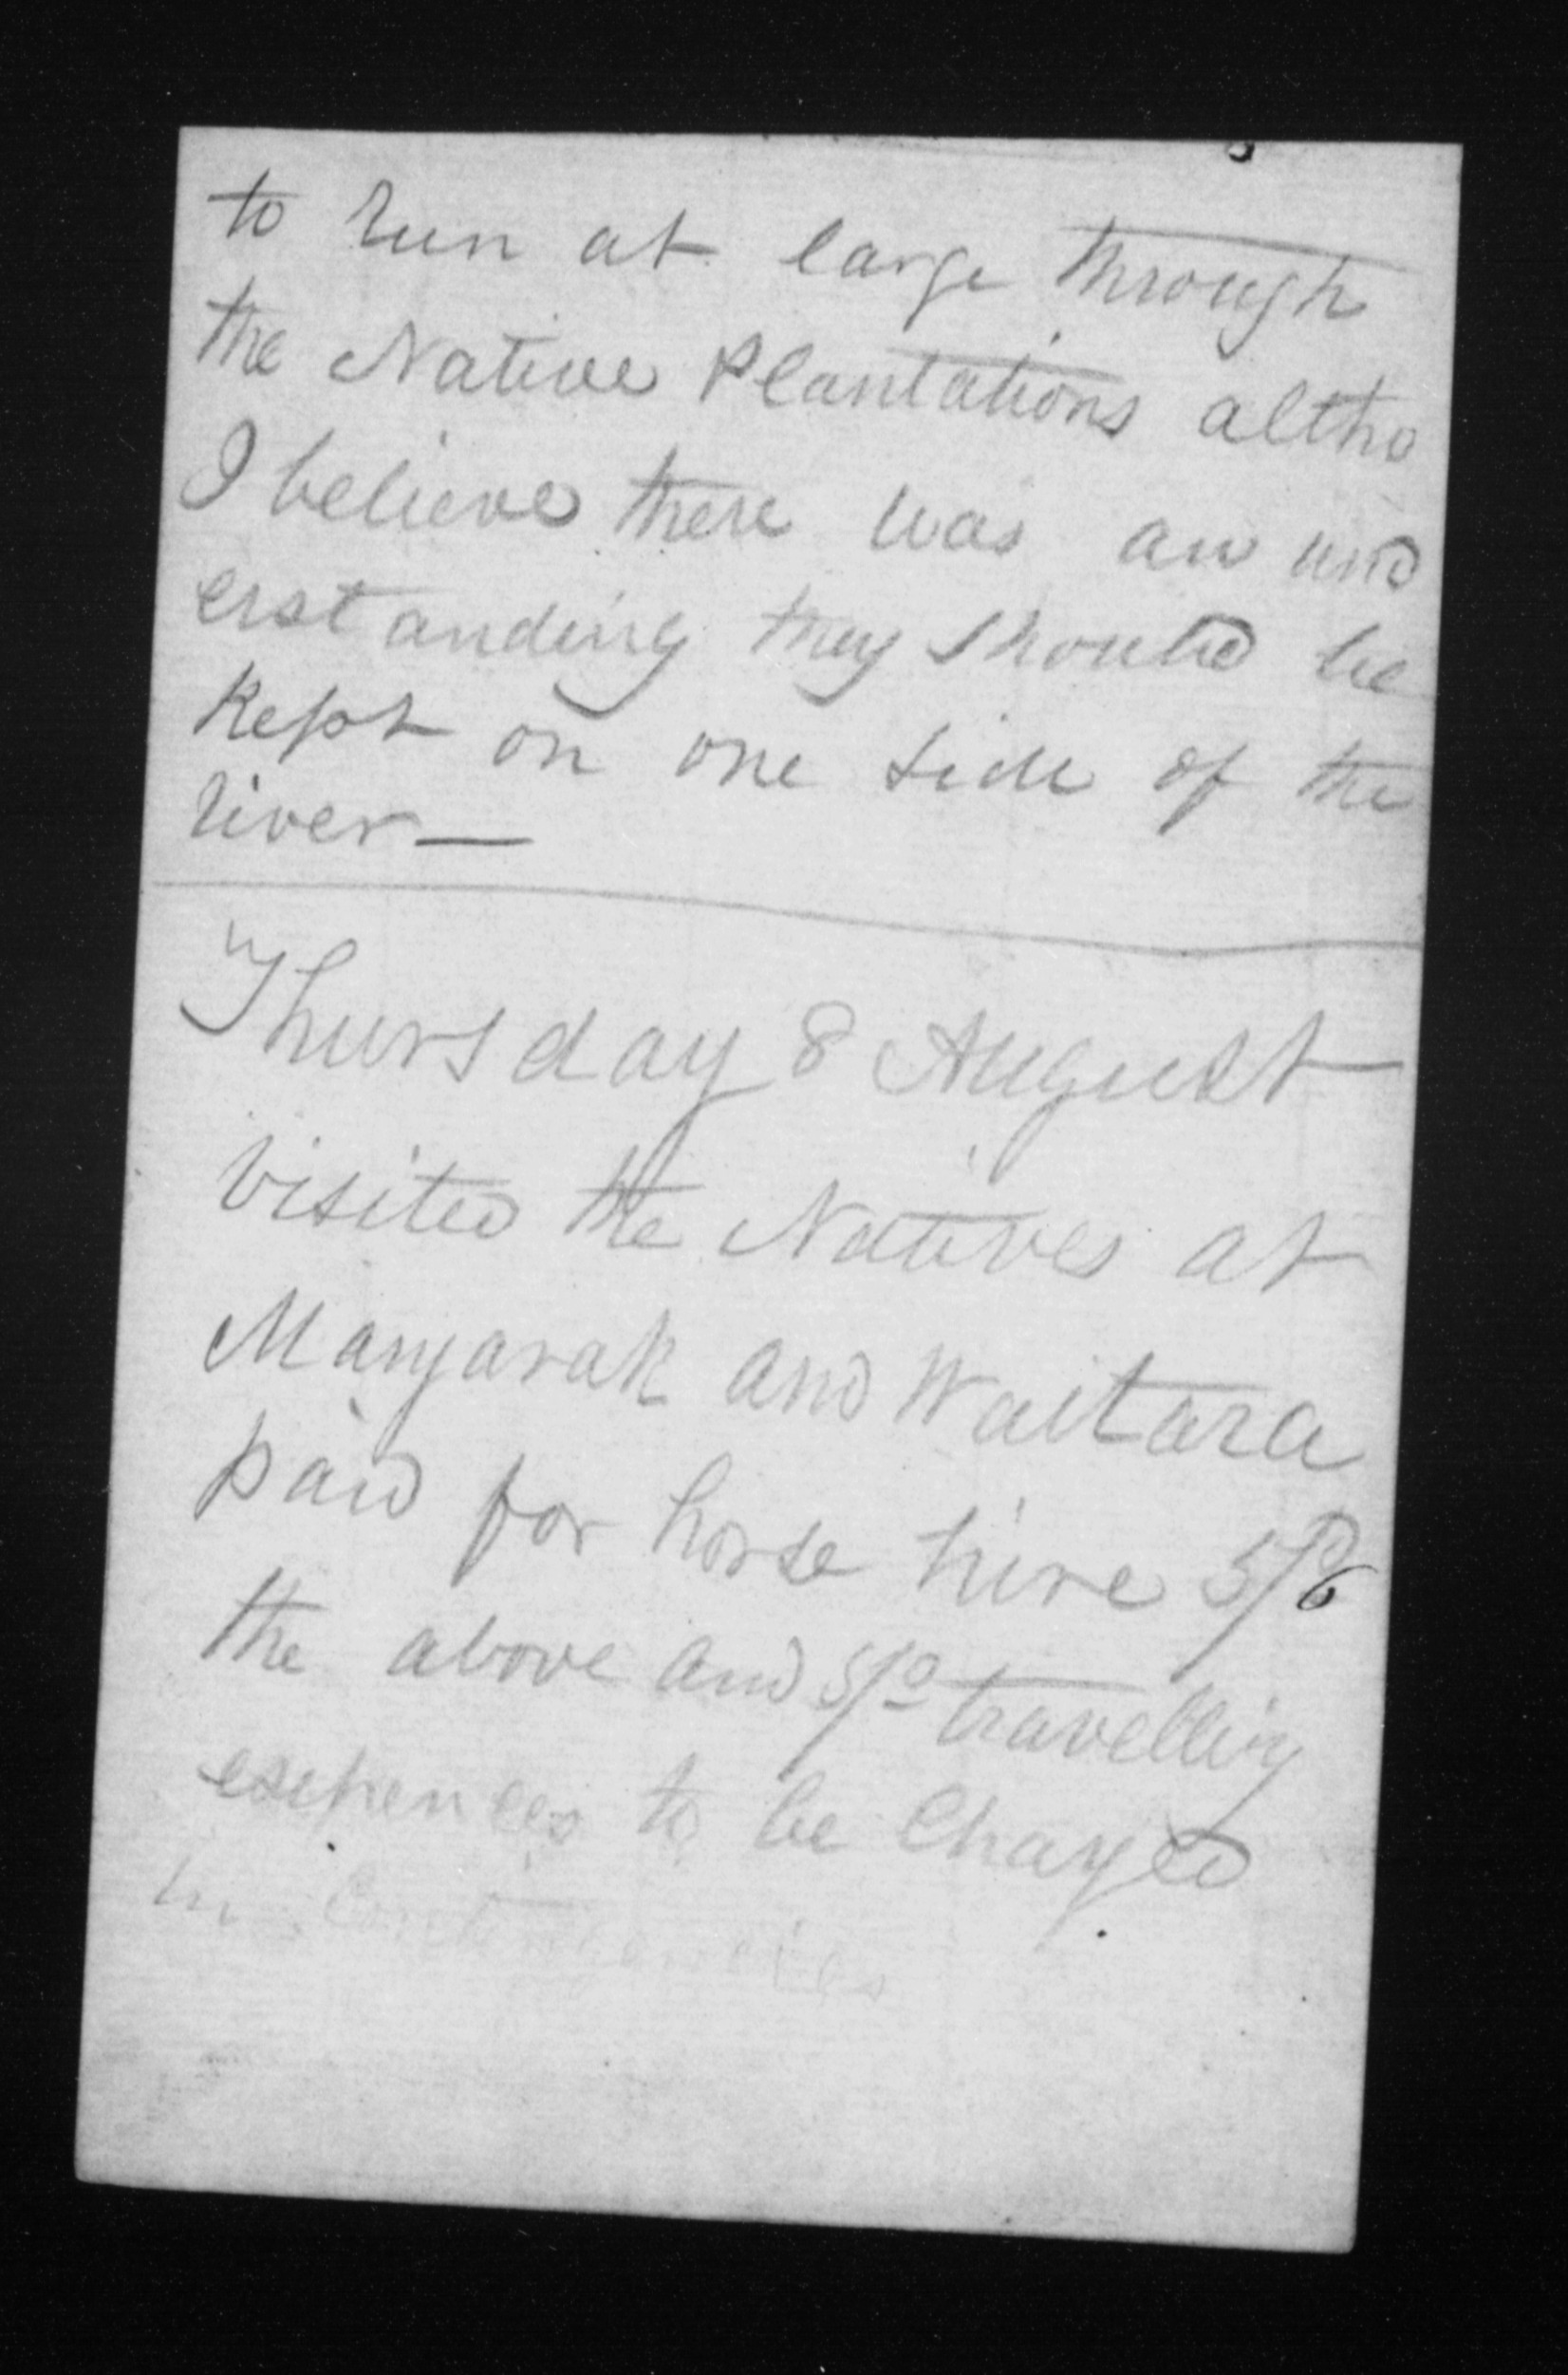 to run at large through
the Native Plantations altho
I believe there was an und
erstanding they should be
kept on one side of the
river —
Thursday 8 August
visited the Natives at
Mangarak and Waitara
paid for horse hire 5/6
the above and 5/0 travelling
expences to be Charged
in Contingencies